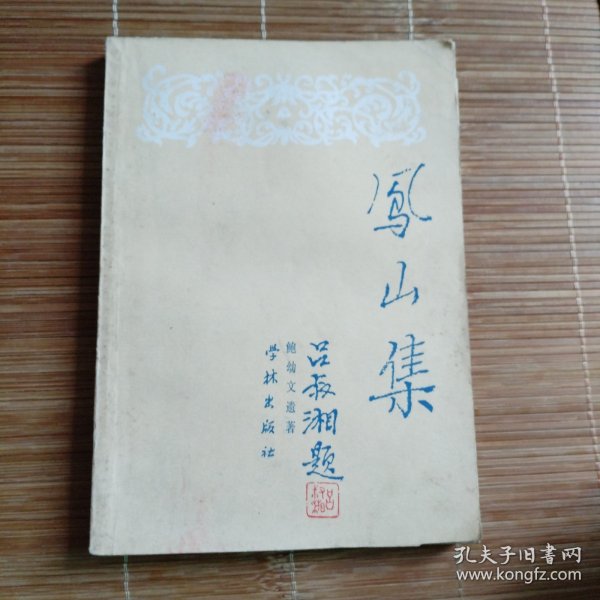 鳳山集
吕叔湘题
鲍幼文遗著
学林出版社
孔夫子旧書网
www.kongfz.com